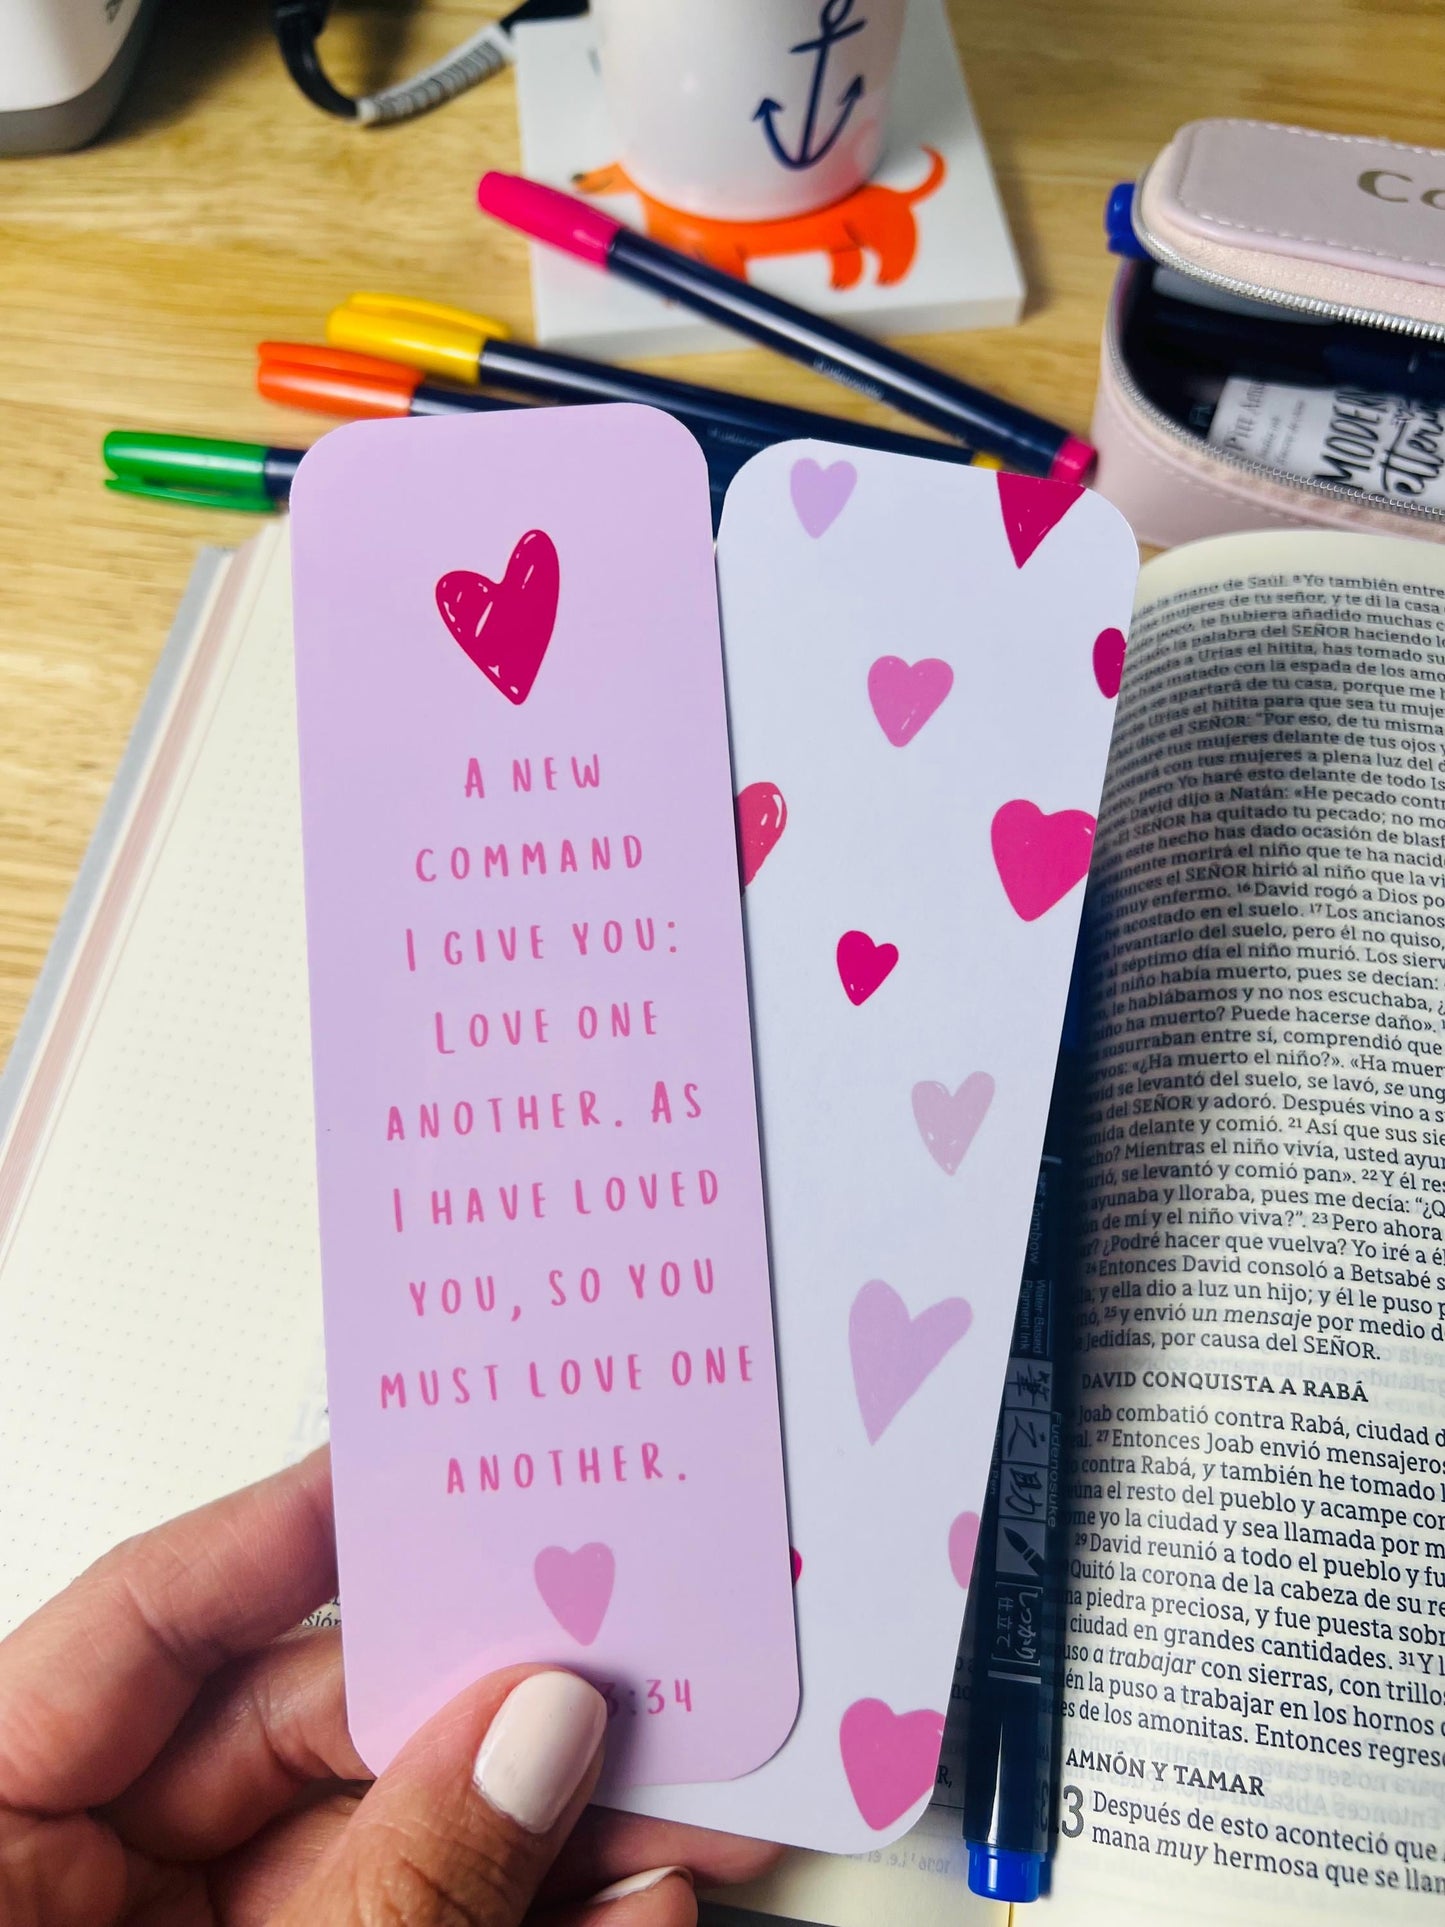 A NEW
COMMAND
I GIVE YOU:
LOVE ONE
ANOTHER. AS
I HAVE LOVED
YOU, SO YOU
MUST LOVE ONE
ANOTHER.
3:34
MODERN
Tombow
Water Based
Pigment Ink
Fudenosuke
la mano de Saúl. ⁸Yo también entre
mujeres de tu señor, y te di la casa
poco, te hubiera añadido muchas
la palabra del SEÑOR haciendo
a Urías el hitita, has tomado su
has matado con la espada de los amo
se apartará de tu casa, porque me
de Urías el hitita para que sea tu muje
dice el SEÑOR: "Por eso, de tu misma
tus mujeres delante de tus ojos y
con tus mujeres a plena luz del d
pero Yo haré esto delante de todo Is
David dijo a Natán: «He pecado contr
El SEÑOR ha quitado tu pecado; no mo
este hecho has dado ocasión de blasf
morirá el niño que te ha nacid
Entonces el SEÑOR hirió al niño que la vi
muy enfermo. ¹⁶David rogó a Dios po
acostado en el suelo. ¹⁷Los ancianos
levantarlo del suelo, pero él no quiso,
al séptimo día el niño murió. Los sierv
el niño había muerto, pues se decían:
le hablábamos y no nos escuchaba, ¿
ha muerto? Puede hacerse daño».
susurraban entre sí, comprendió que
«¿Ha muerto el niño?». «Ha muer
se levantó del suelo, se lavó, se ung
del SEÑOR y adoró. Después vino a s
delante y comió. ²¹Así que sus sie
Mientras el niño vivía, usted ayun
se levantó y comió pan». ²²Y él res
ayunaba y lloraba, pues me decía: "¿Q
de mí y el niño viva?". ²³Pero ahora
¿Podré hacer que vuelva? Yo iré a él
²⁴Entonces David consoló a Betsabé s
y ella dio a luz un hijo; y él le puso p
²⁵y envió un mensaje por medio d
Jedidías, por causa del SEÑOR.
DAVID CONQUISTA A RABÁ
Joab combatió contra Rabá, ciudad d
²⁷Entonces Joab envió mensajeros
contra Rabá, y también he tomado l
el resto del pueblo y acampe con
yo la ciudad y sea llamada por m
²⁹David reunió a todo el pueblo y fu
Quitó la corona de la cabeza de su re
piedra preciosa, y fue puesta sobr
ciudad en grandes cantidades. ³¹Y l
a trabajar con sierras, con trillos
la puso a trabajar en los hornos d
de los amonitas. Entonces regres
AMNÓN Y TAMAR
13 Después de esto aconteció que
mana muy hermosa que se llam